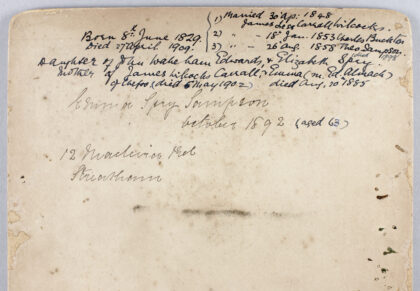 Born 8th June 1829.
Died 27 April 1909.
1) Married 30 Ap. 1848
James Carrall Wilcocks.
2) " - 18 Jan. 1853 Charles Buckton
3) " - 26 aug. 1858 Theo Sampson
Daughter of John Wakeham Edwards, & Elizabeth Spry
Mother of James Wilcocks Carrall, & Emma (m. Ed.
of Chefoo (died 5 May 1902) died Aug. 20 1885
Emma Spry Sampson
October 1892 (aged 63)
12 Madeira Rd
Streatham